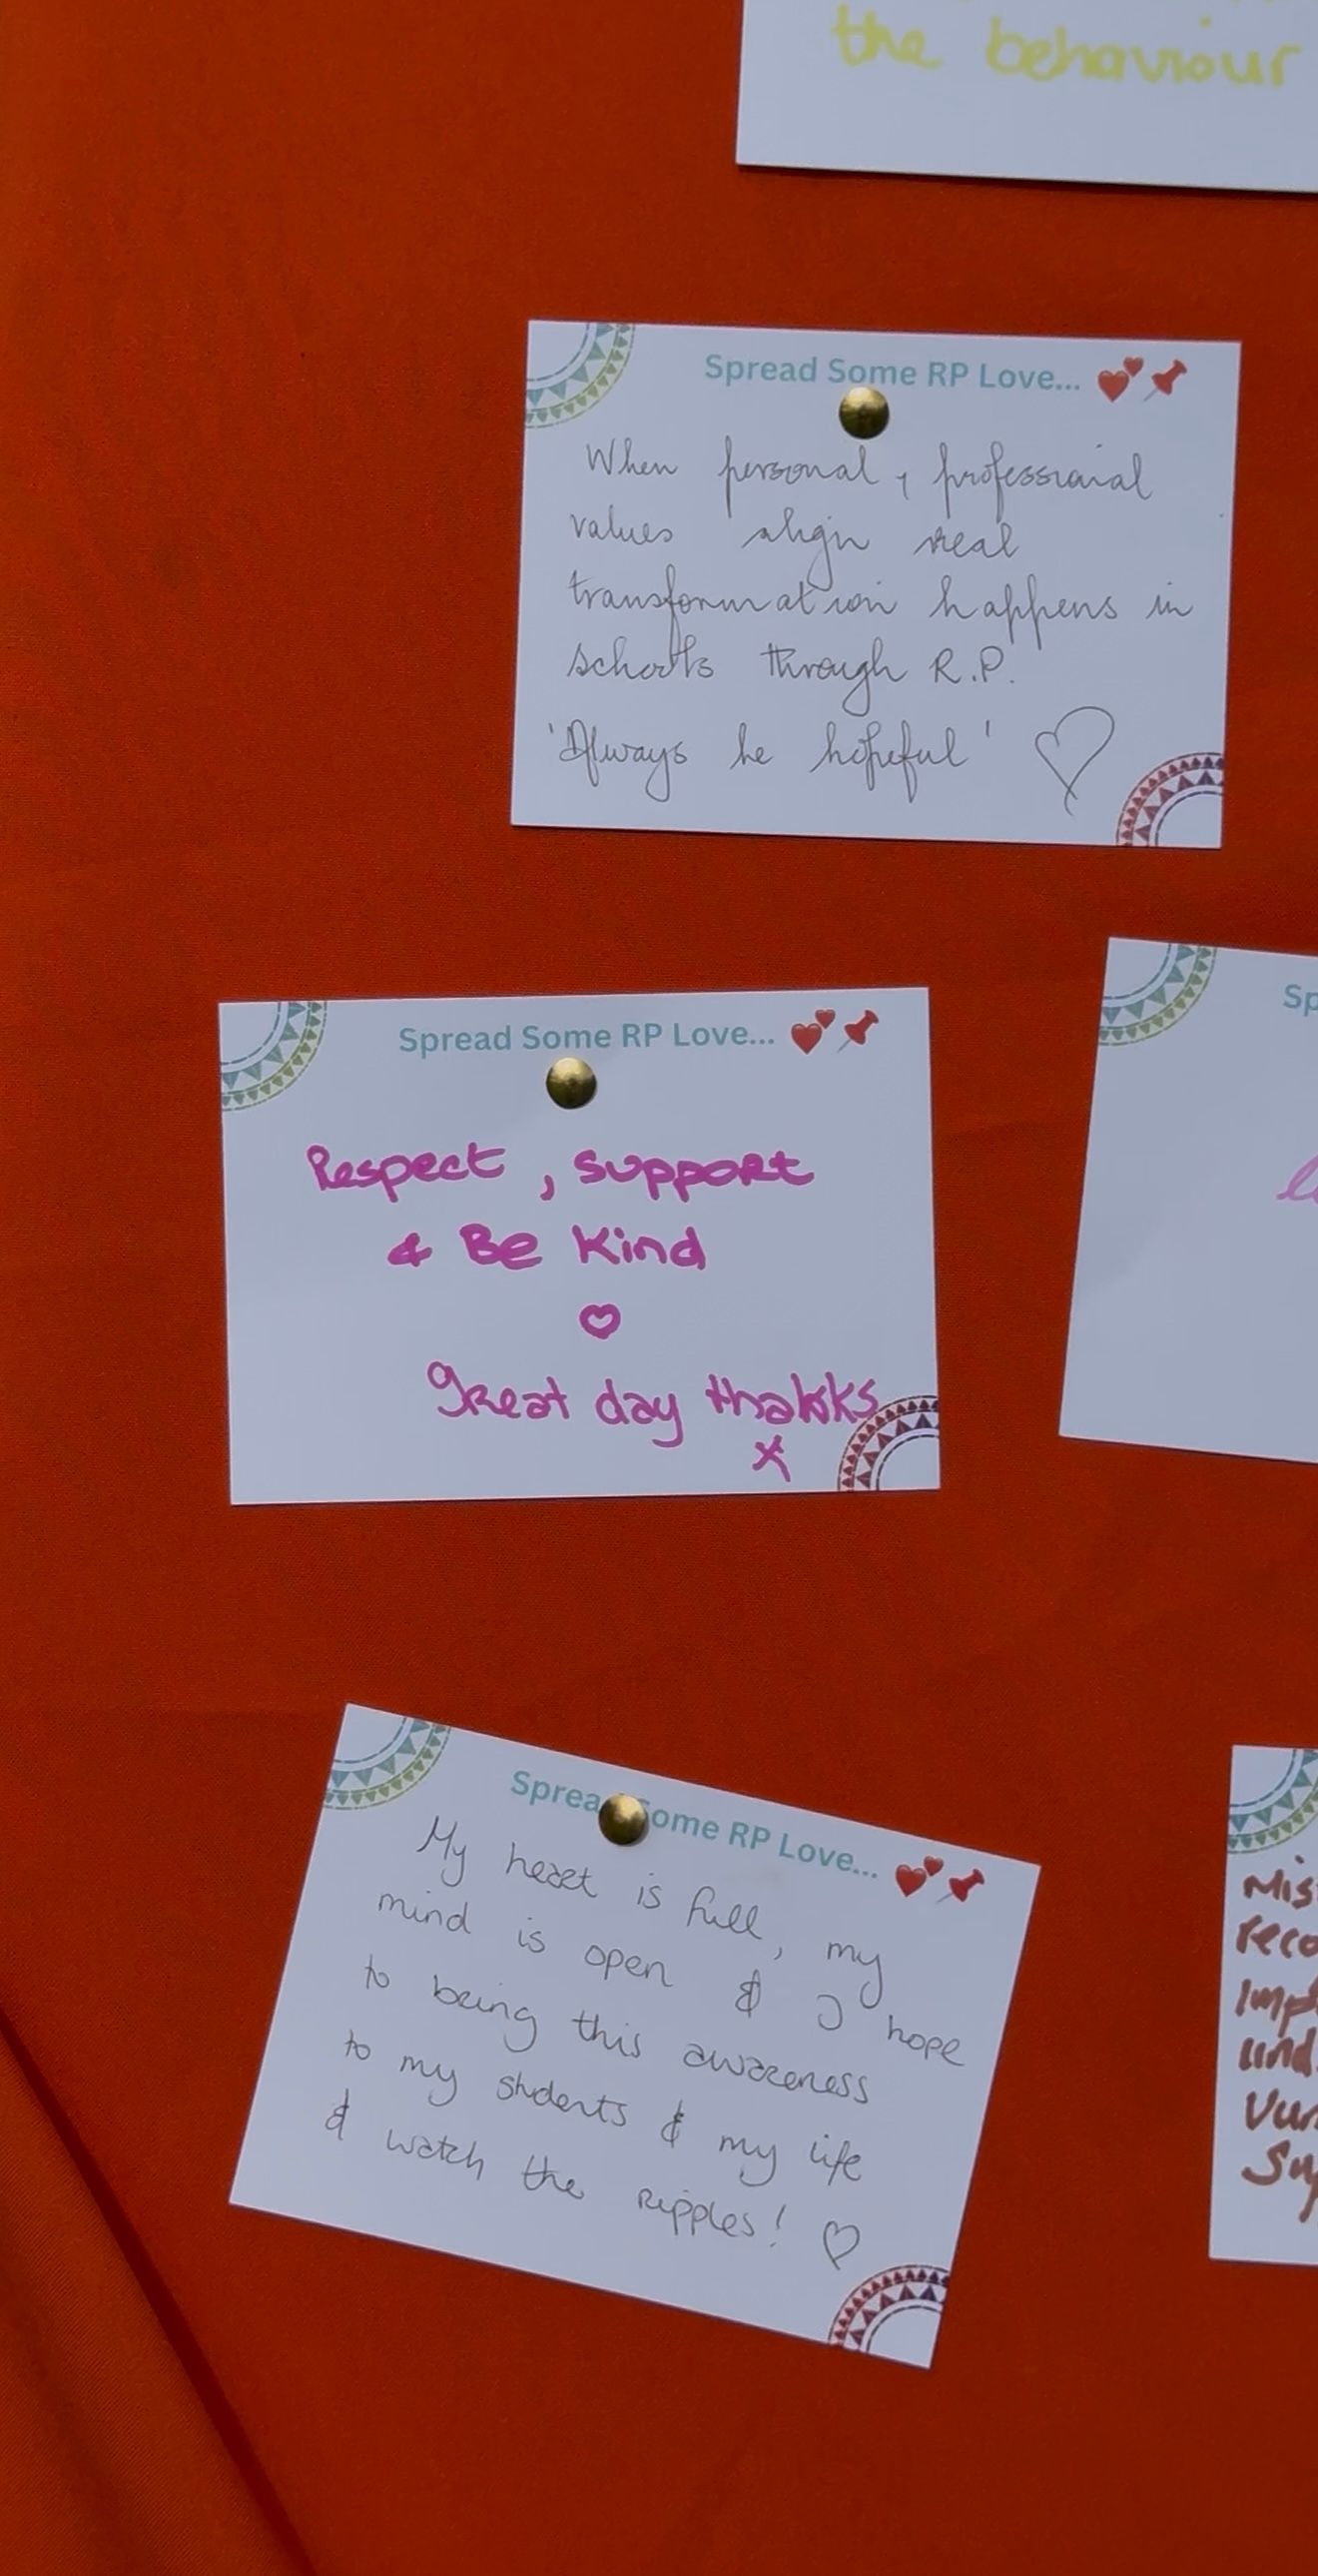 the behaviour
Spread Some RP Love...
When personal & professional
values align real
transformation happens in
schools through R.P.
'Always be hopeful'
Spread Some RP Love...
Respect, support
& Be Kind
great day thanks
x
Sp
Spread Some RP Love...
My heart is full, my
mind is open & I hope
to being this awareness
to my students & my life
& watch the ripples!
Mis
reco
Impl
und
Vun
Sup